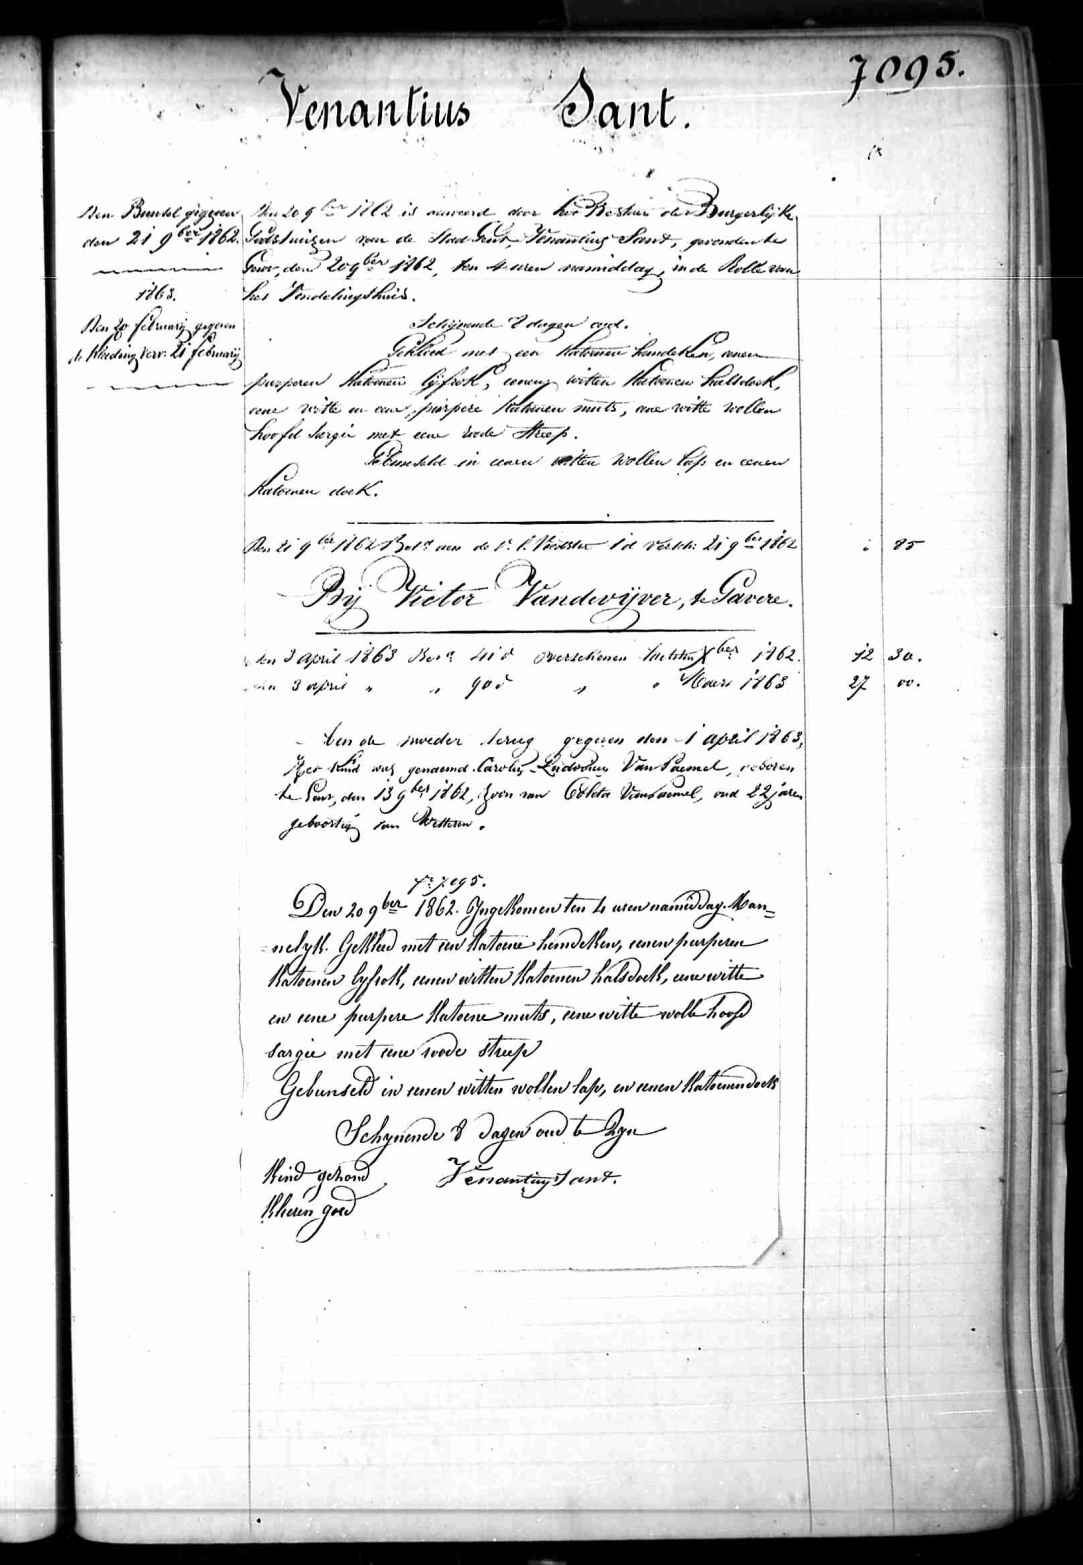 7095.
Venantius Sant.
Den Bundel gegeven
den 21 9ber 1862.
1863.
Den 20 februarij gegeven
de kleeding verv. 21 februarij
Den 20 9ber 1862 is aanveerd door het Bestuur der Burgerlijke
Godshuizen van de Stad Gent, Venantius Sant, gevonden te
Gent, den 20 9ber 1862, ten 4 uren namiddag, in de Rolle van
het Vondelingshuis.
Schijnende 8 dagen oud.
Gekleed met een katoenen hemdeken, eenen
purperen katoenen lijfrok, eenen witten katoenen halsdoek,
eene witte en eene purpere katoenen muts, eene witte wollen
hoofd sargie met eene roode streep.
Gebunseld in eenen witten wollen lap en eenen
katoenen doek.
Den 21 9ber 1862 Betd aan de 1 d 21 9ber 1862 1 85
Bij Victor Vandewijver, te Gavere.
den 3 april 1863 Betd 41 d overschenen Xber 1862. 12 30.
den 3 april " " 90 d " " Maart 1863 27 00.
Aen de moeder terug gegeven den 1 april 1863,
Het kind was genaemd Carolus-Ludovicus Van Paemel, geboren
te Gent, den 13 9ber 1862, Zoon van Coleta Van Paemel, oud 22 jaren
geboortig van Wetteren.
No 7095.
Den 20 9ber 1862. Ingekomen ten 4 uren namiddag. Man-
-nelyk. Gekleed met een katoene hemdeken, eenen purperen
katoenen lyfrok, eenen witten katoenen halsdoek, eene witte
en eene purpere katoene muts, eene witte wolle hoofd
sargie met eene roode streep
Gebunseld in eenen witten wollen lap, en eenen katoenen doek
Schynende 8 dagen oud te Zyn
Kind gezond Venantius Sant.
Kleeren goed